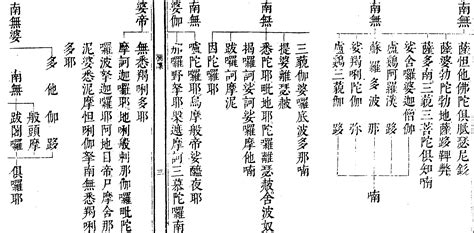 南無
薩怛他佛陀俱胝瑟尼釤
薩婆勃陀勃地薩跢鞞弊
薩多南三藐三菩陀俱知喃
娑舍囉婆迦僧伽
盧鷄阿羅漢跢
南無
蘇羅多波那
喃
娑羯唎陀伽彌
盧鷄三藐伽跢
三藐伽婆囉底波多那喃
南無
提婆離瑟赧
悉陀耶毗地耶陀囉離瑟赧舍波奴
揭囉訶娑訶娑囉摩他喃
跋囉訶摩
因陀囉耶
婆伽
嚧陀囉耶烏摩般帝娑醯夜耶
那囉野拏耶槃遮摩訶三慕陀囉南
三
婆帝
無悉羯唎多耶
摩訶迦囉耶地唎般剌那伽囉毗陀
囉波拏迦囉耶阿地目帝尸摩舍那
泥婆悉泥摩怛唎伽拏南無悉羯唎
多耶
南無婆
多他伽跢
南無
般頭摩
跋闍囉
俱囉耶